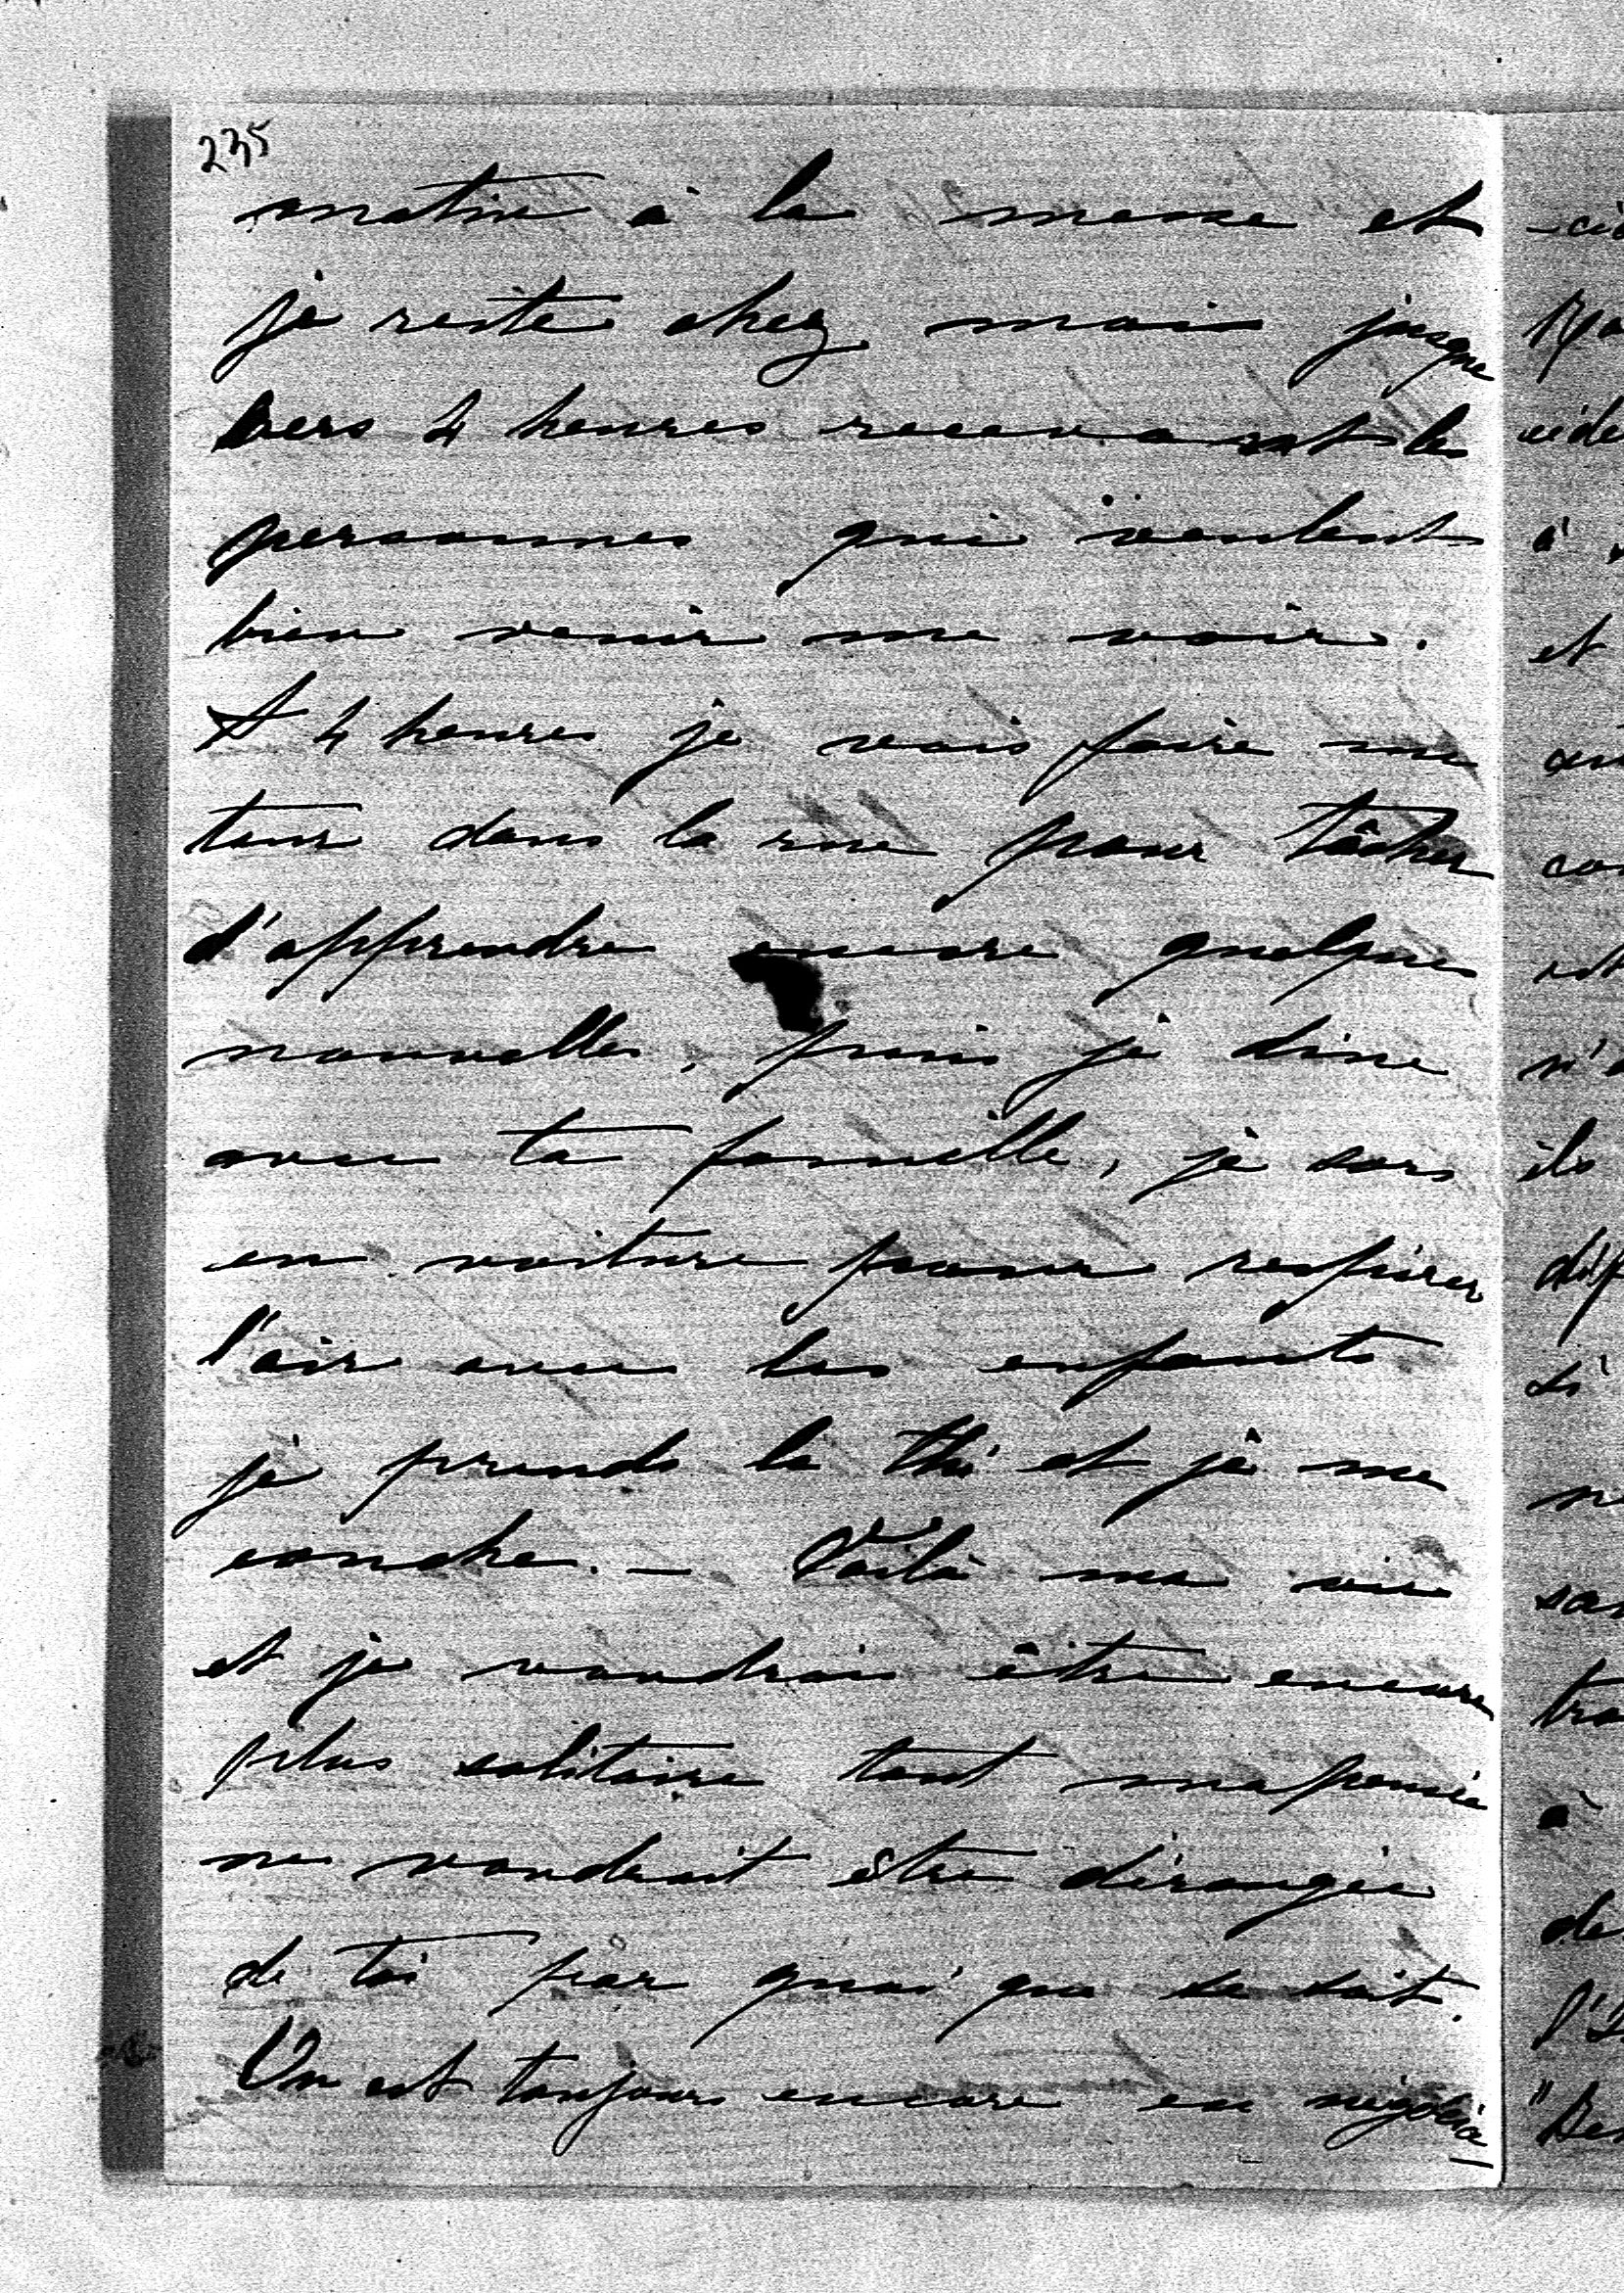 235
matin à la messe et
je reste chez moi jusque
vers 4 heures recevant les
personnes qui veulent
bien venir me voir.
A 4 heures je vais faire un
tour dans la rue pour tâcher
d'apprendre encore quelques
nouvelles, puis je dine
avec ta famille, je sors
en voiture pour respirer
l'air avec les enfants
je prends le thé et je me
couche. — Voilà ma vie
et je voudrais être encore
plus solitaire tant ma pensée
ne voudrait être dérangée
de toi par quoi que se soit.
On est toujours encore en négocia